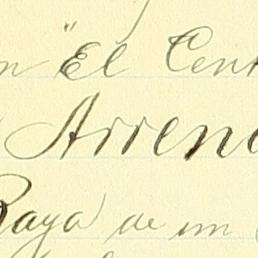 n "El Cent
Arrend
Raya de un